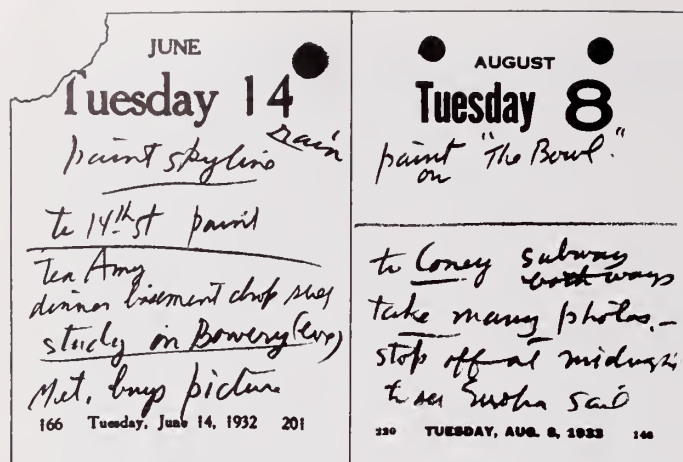 JUNE
Tuesday 14
rain
paint skyline
to 14th st paint
Tea Amy
dinner basement chop suey
study in Bowery (eve)
Met. buys picture
166 Tuesday, June 14, 1932 201
AUGUST
Tuesday 8
paint "The Bowl."
on
to Coney subway
both ways
take many photos.—
stop off at midnight
to see Europa sail
220 TUESDAY, AUG. 8, 1933 146